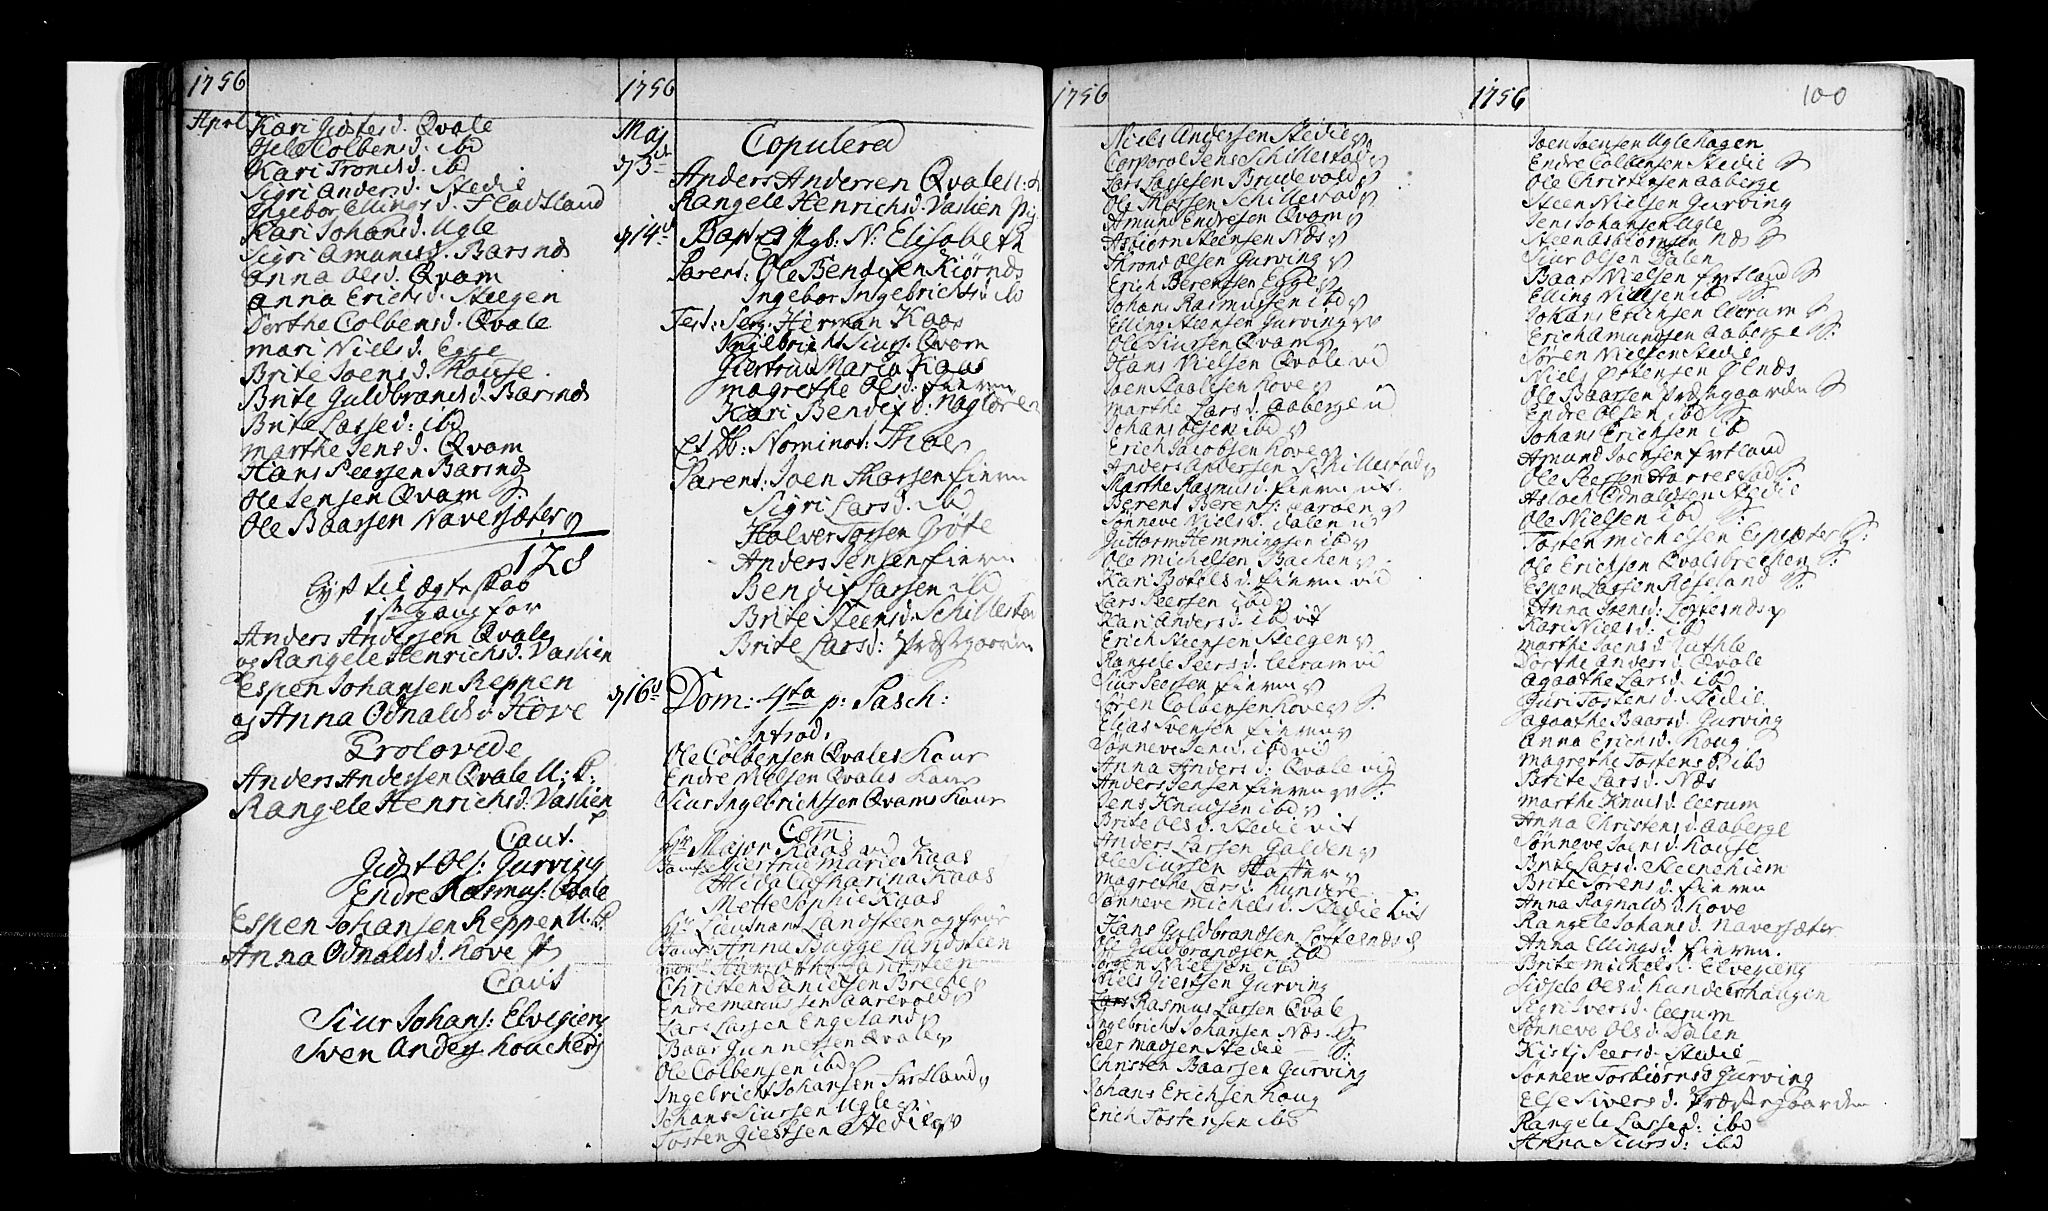 1756
Aprl Kari Giøstesd. Qvale
Colbensd: ibd
Kari Tronsd. ibd
Sigri Andersd. Stedie
Ingebor Ellingsd. Fladtland
Kari Johansd. Ugle
Sigri Amundsd. Barsnds
Anna Olsd. Qvam
Anna Erichsd. Steegen
Dorthe Colbensd. Qvale
Mari Nielsd. Egge
Brite Joensd. Kouse
Brite Guldbrandsd. Barsnds
Brite Lassed: ibd
Marthe Jensd. Qvam
Hans Peersen Barsnds
Ole Jensen Qvam
Ole Baarsen Naversæter
128
Lyst til Ægteskab
1ste gang for
Anders Andersen Qvale
og Rangele Henrichsd. Vaslien
Espen Johansen Reppen
og Anna Odnaldsd. Hove
Trolovede
Anders Andersen Qvale U: K:
Rangele Henrichsd. Vaslien
P
Caut.
Giøst Ols: Gurving
Endre Rasmus: Qvale
Espen Johansen Reppen U. K.
Anna Odnaldsd. Hove P
Caut
Siur Johans: Elvegieng
Sven Anders
1756
Maj
d 3d
Copulered
Anders Andersen Qvale U: K
Rangele Henrichsd. Vaslien Pig
d 14d Bapt: N: Elisabeth
Parent: Ole Bendixen Kiørnds
Ingebor Ingebrichtsd. ibd
Test: Serg. Herman Kaas
Ingebricht Siurs: Qvam
Giertrud Maria Kaas
Magrethe Olsd: Fierem
Kari Bendixd: Nagløren
et Db: Nominat: Thoe
Parent: Joen Thorsen Fierem
Sigri Larsd. ibd
Halvor Grøte
Anders Jensen Fierem
Bendix Larsen ibd
Brite Steensd. Schillestad
Brite Larsd: Præstgaarden
d 16d Dom: 4ta p: Pasch:
Introd.
Ole Colbensen Qvales Kone
Endre Nielsen Qvales Kone
Siur Ingebrichtsen Qvams Kone
Com:
Hr Major Kaas
Giertrud Marie Kaas
Alida Catharina Kaas
Mette Sophie Kaas
Hr Lieutnant Landsteen og frue
Anna Bagge Landsteen
Christen Danielsen Brede
Endre Aarevold
Lars Larsen Engeland
Baar Gunnelsen Qvale
Ole Colbensen ibd
Ingebricht Johansen Fretland
Johans Siursen Ugle
Tosten Giestsen Stedie
1756
Niels Andersen Stedie
Corporal Jens Schillestad
Lars Lassesen Brudevold
Ole Thorsen Schillestad
Amund Endresen Qvam
Asbiørn Steensen Nds
Thrond Olsen Gurving
Erich Berentsen Egge
Johans Rasmussen ibd
Elling Steensen Gurving
Ole Siursen Qvam
Hans Nielsen Qvale
Joen Hove
Marthe Larsd. Aaberge
Johans Olsen ibd
Erich Jacobsen Hove
Anders Andersen Schillestad
Marthe Rasmusd. Fierem
Berent Berens:
Sønneve Nielsd. Dalen
Guttorm Hemmingsen ibd
Ole Michelsen Bachen
Kari Botelsd. Fierem
Lars Peersen ibd
Kari Andersd. ibd
Erich Steensen Steegen
Rangele Peersd. Leerum
Siur Peersen Fierem
Søren Colbensen Hove
Elias Svensen Fierem
Sønneve Jensd. ibd
Anna Andersd: Qvale
Anders Jensen Fierem
Jens Knudsen ibd
Brite Olsd. Stedie
Anders Larsen Galden
Ole Siursen
Magrethe Larsd. Kundere
Sønneve Michelsd. Stedie
Hans Guldbrandsen Loftesnds
Ole Guldbrandsen ibd
Jørgen Nielsen ibd
Niels Giestsen Gurving
Rasmus Larsen Qvale
Ingebricht Johansen Nds
Peer Madsen Stedie
Christen Baarsen Gurving
Johans Erichsen Houg
Erich Tostensen ibd
1756
100
Joen Joensen Uglehagen
Endre Colbensen Stedie
Ole Christensen Aaberge
Steen Nielsen Gurving
Jens Johansen Ugle
Steen Asbiørnsen Nds
Siur Olsen Dalen
Baar Nielsen Fretland
Elling Nielsen ibd
Johans Erichsen Leerum
Erich Amundsen Aaberge
Søren Nielsen Stedie
Niels Østensen Ølnds
Ole Baarsen Præstgaarden
Endre Olsen ibd
Johans Erichsen ibd
Amund Joensen Fretland
Ole Peersen
Asloch Odnaldsen Stedie
Ole Nielsen ibd
Tosten Michelsen Espesæter
Ole Erichsen Qvalsbrechen
Espen Larsen Røseland
Anna Loftesnds
Kari Nielsd: ibd
Marthe Joensd.
Dorthe Andersd. Qvale
Agaathe Larsd. ibd
Guri Tostensd. Stedie
Agaathe Baarsd. Gurving
Anna Erichsd. Houg
Magrethe Tostensd. ibd
Brite Larsd. Nds
Marthe Knudsd. Leerum
Anna Christensd. Aaberge
Sønneve Joensd. Kouse
Brite Larsd. Steenehiem
Brite Sørensd. Fierem
Anna Ragnaldsd. Hove
Rangele Johansd. Naversæter
Anna Ellingsd. Fierem
Brite Michelsd. Elvegieng
Sidsele Olsd. Handeerhaugen
Sigri Iversd. Leerum
Sønneve Olsd. Dalen
Kisti Peersd. Stedie
Sønneve Torbiørnsd. Gurving
Else Siversd. Præstegaarden
Rangele Lassed: ibd
Anna Siursd: ibd